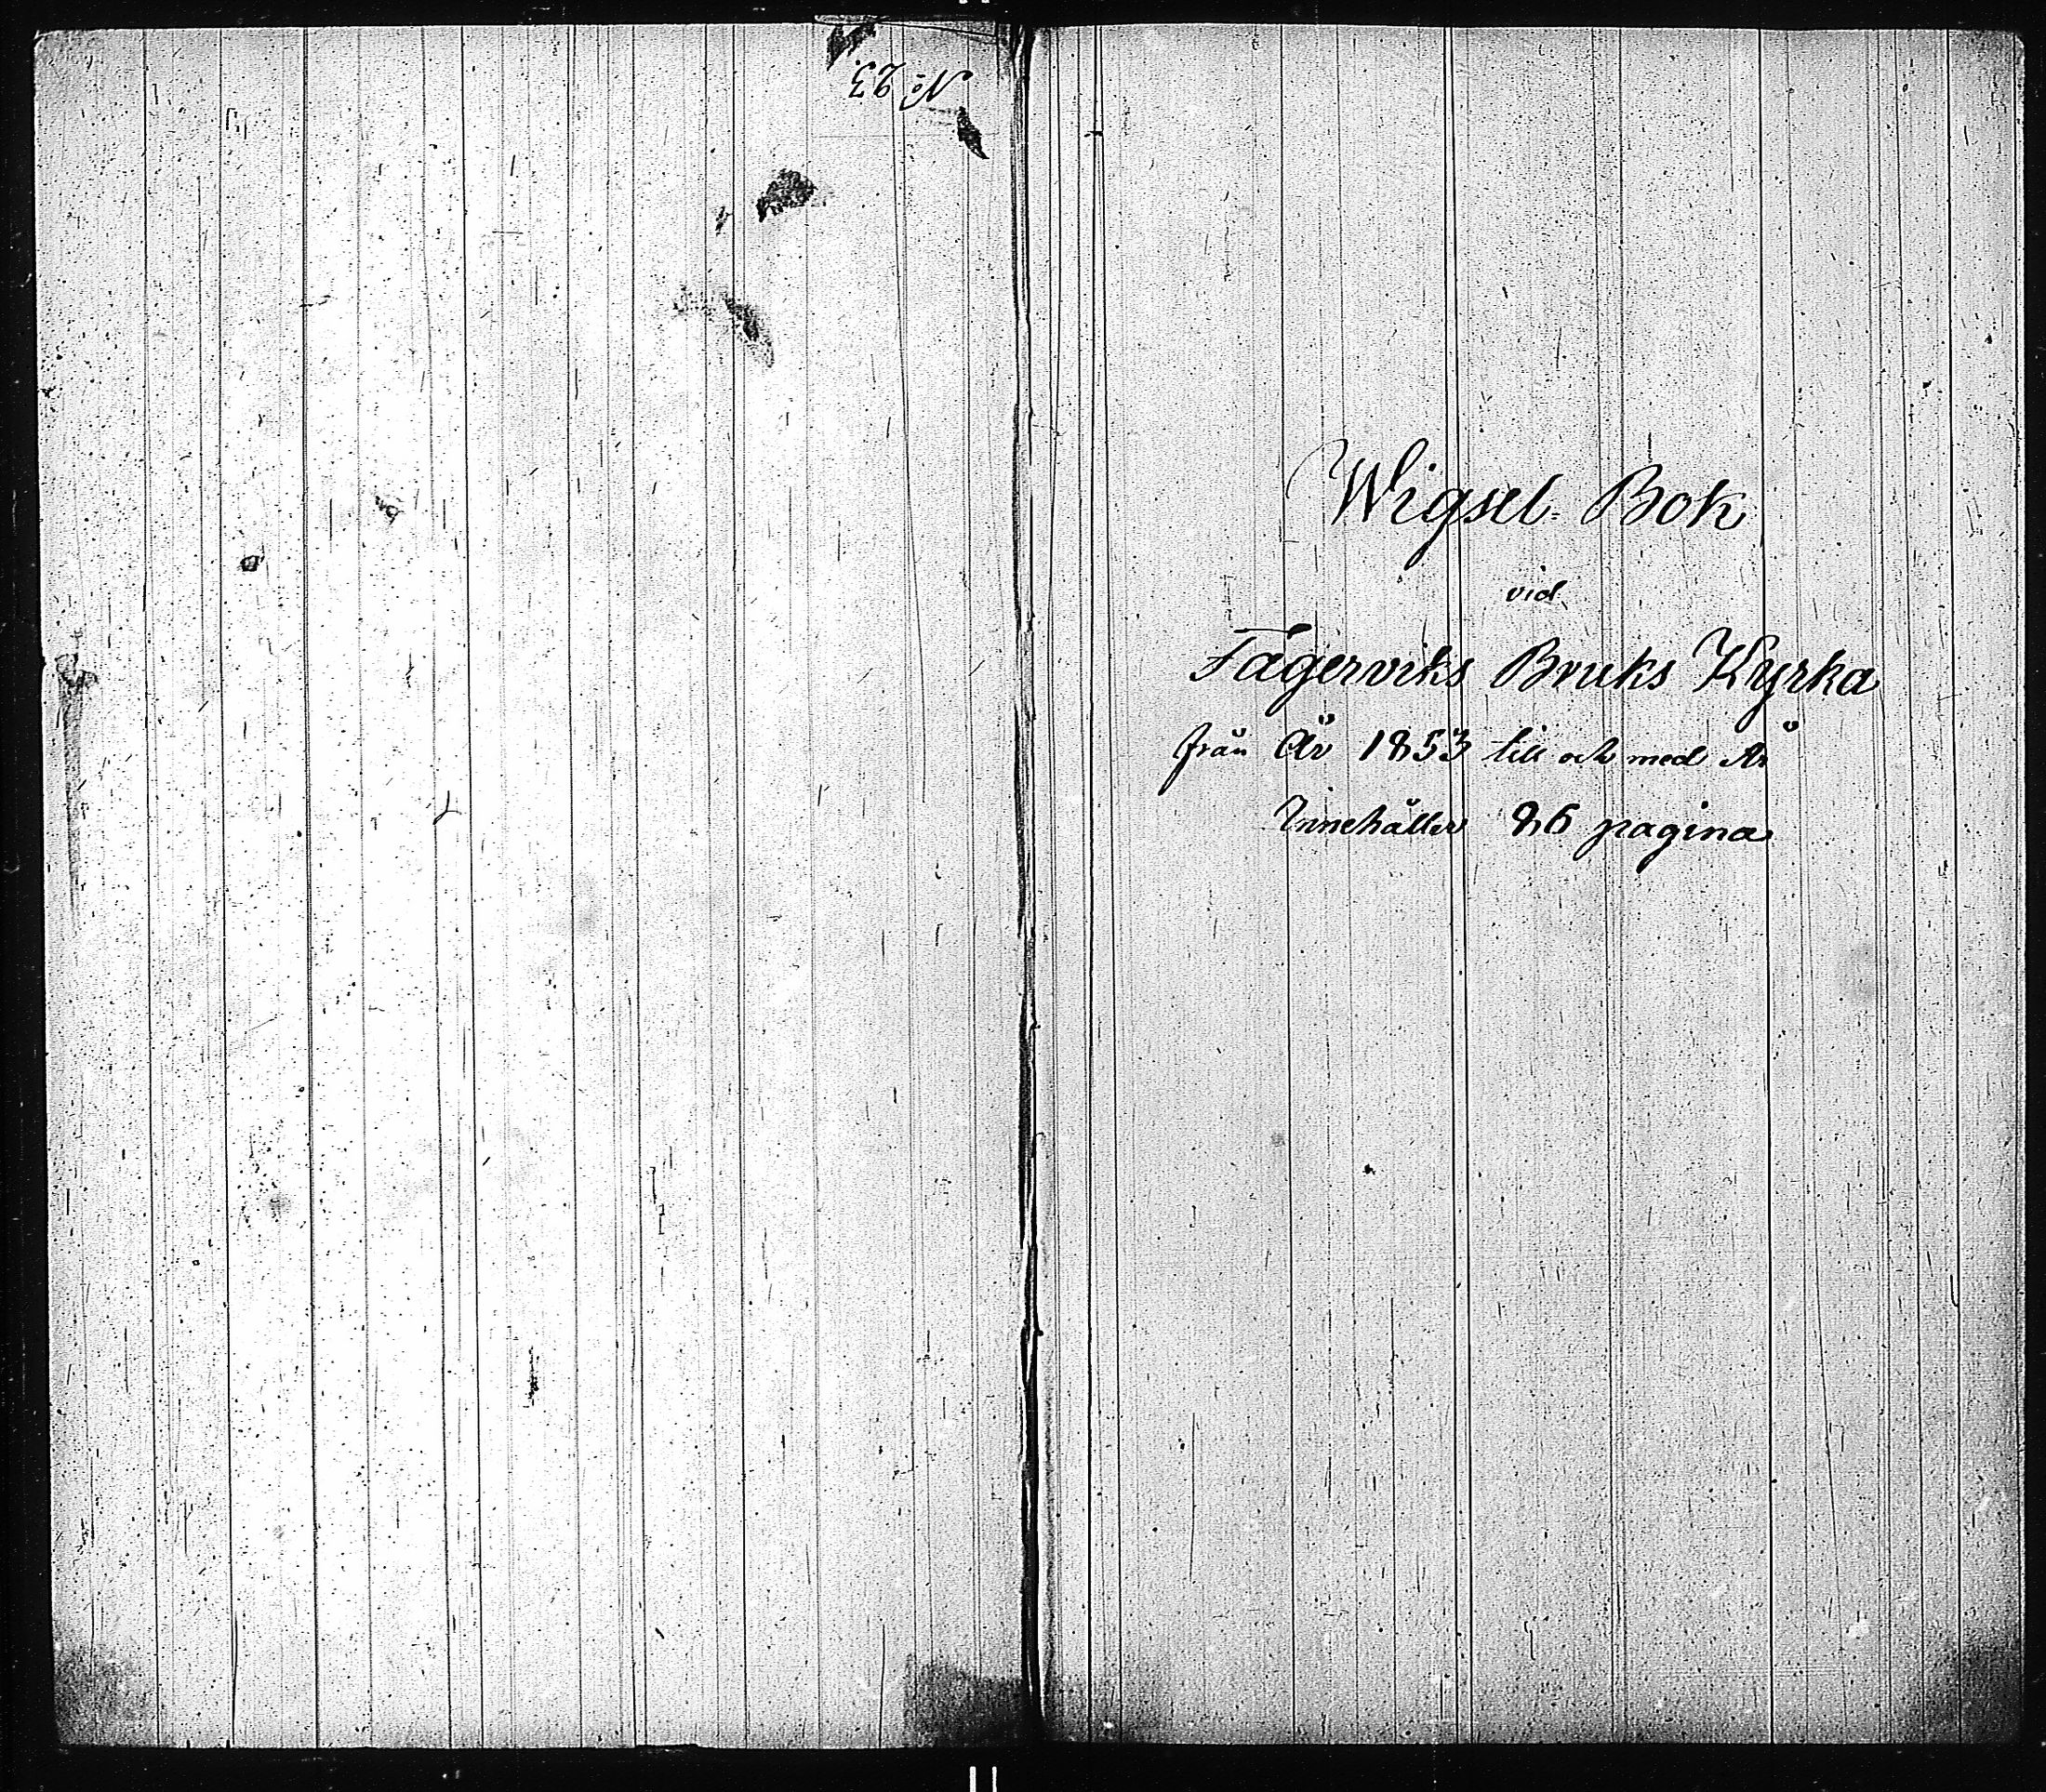 No 23.
Wigsel-Bok
vid
Fagerviks Bruks Kyrka
från År 1853 till och med År
Innehåller 86 pagina